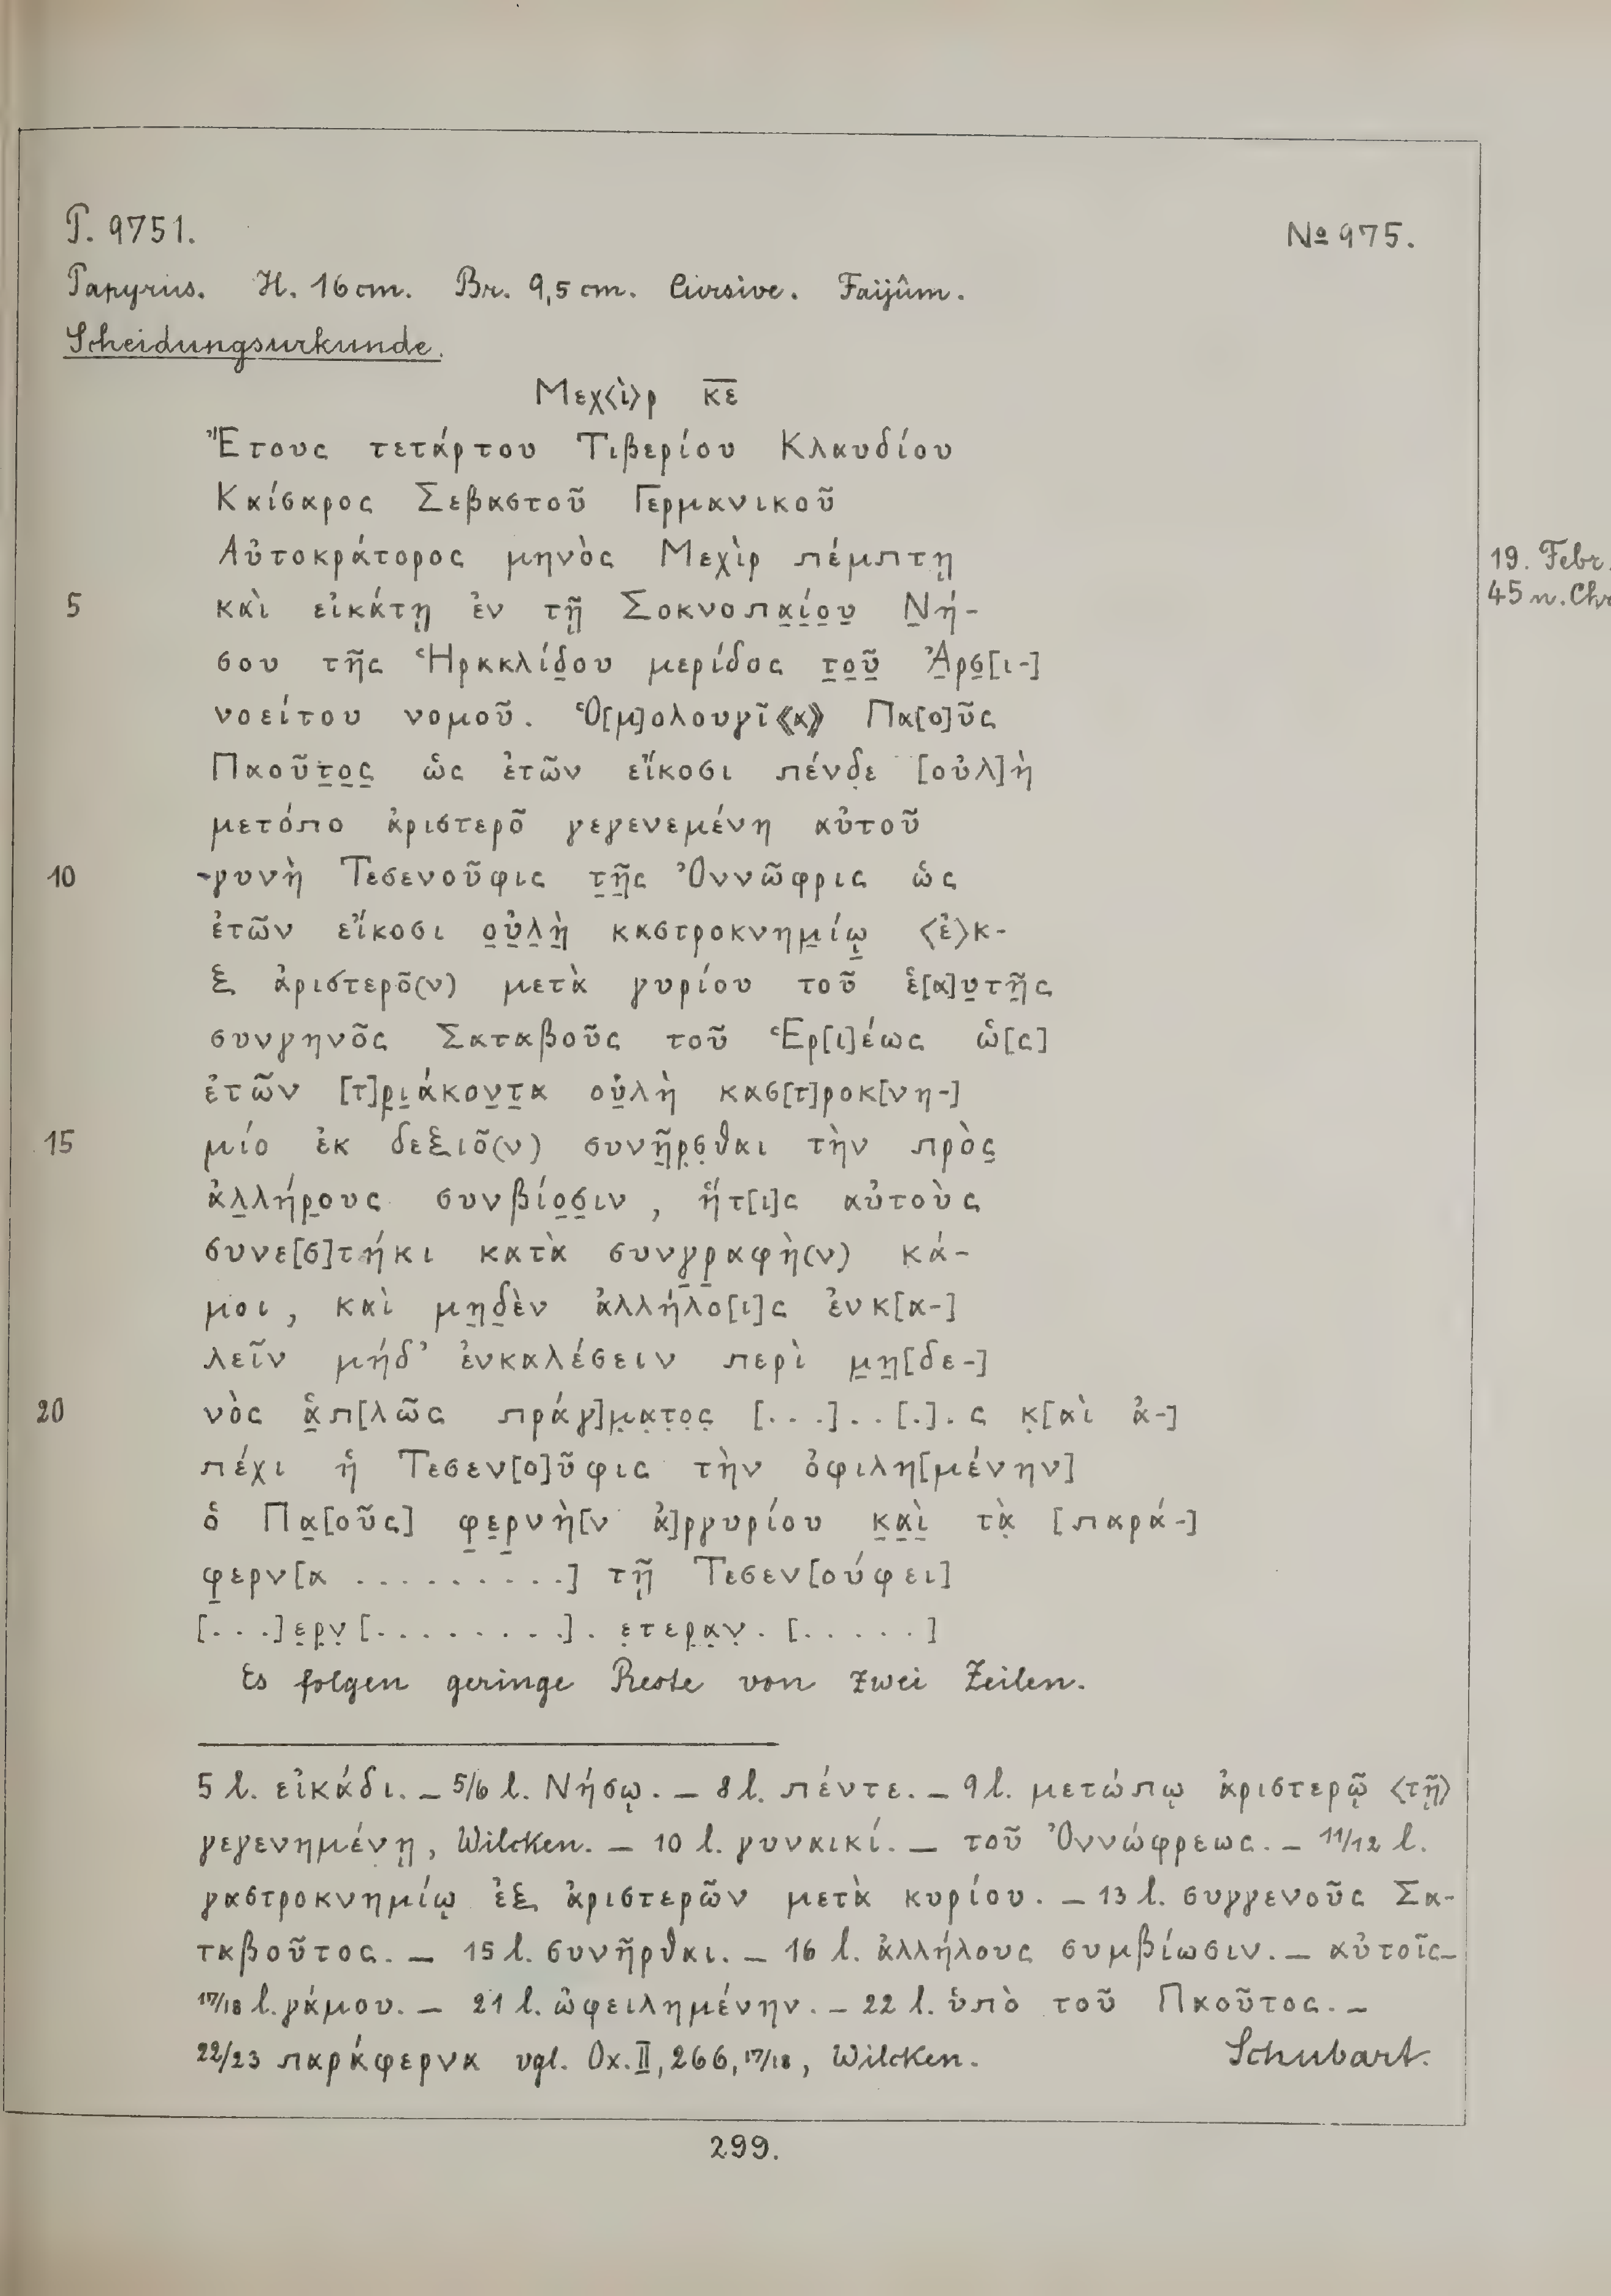 P. 9751.
№ 975.
Papyrus. H. 16 cm. Br. 9,5 cm. Cursive. Faijûm.
Scheidungsurkunde.
Μεχ〈ὶ〉ρ κ̅ε̅
Ἔτους τετάρτου Τιβερίου Κλαυδίου
Καίσαρος Σεβαστοῦ Γερμανικοῦ
Αὐτοκράτορος μηνὸς Μεχὶρ πέμπτῃ
19. Febr.
45 n. Chr
5 καὶ εἰκάτῃ ἐν τῇ Σοκνοπα̲ί̲ο̲υ̲ Ν̲ή-
σου τῆς Ἡρακλίδ̲ου μερίδος τ̲ο̲ῦ̲ Ἀ̲ρσ̲[ι-]
νοείτου νομοῦ. Ὁ[μ]ολουγῖ⟪α⟫ Πα[ο]ῦς
Παοῦτ̲ο̲ς̲ ὡς ἐτῶν εἴκοσι πένδ̣ε [οὐλ]ὴ
μετόπο ἀριστερο͂ γεγενεμένη αὐτοῦ
10 γυνὴ Τεσενοῦφις τ̲ῆ̲ς Ὀννῶφρις ὡς
ἐτῶν εἴκοσι ο̲ὐ̲λ̲ὴ̲ καστροκνημ̲ίῳ̲ 〈ἐ〉κ-
ξ ἀριστερο͂(ν) μετὰ γυρίου τοῦ ἑ[α]υ̲τῆ̲ς
συνγηνο͂ς Σαταβοῦς τοῦ Ἑρ[ι]έως ὡ[ς]
ἐτῶν [τ]ρ̲ι̲άκον̲τ̲α οὐ̲λὴ κασ[τ]ροκ[νη-]
15 μίο ἐκ δεξιο͂(ν) συνῆ̲ρ̣σ̣θαι τὴν πρὸς̲
ἀλ̲λήρ̲ους συνβίο̲σ̲ιν, ἥτ[ι]ς αὐτοὺς
συνε[σ]τήκι κατὰ συνγ̲ρ̲αφὴ(ν) κά-
μοι, καὶ μη̲δ̲ὲν ἀλλήλο[ι]ς ἐνκ[α-]
λεῖν μήδ’ ἐνκαλέσειν περὶ μ̲η̲[δε-]
20 νὸς ἁ̲π[λῶς πράγ]μ̣α̣τ̣ο̣ς̣ [...]..[.].ς κ̣[αὶ ἀ-]
πέχι ἡ Τεσεν[ο]ῦφις τὴν ὀφιλη[μένην]
ὁ Πα̲[οῦς] φ̲ε̲ρ̲νὴ[ν ἀ]ργυρίου κ̲α̲ὶ̲ τὰ̣ [παρά-]
φ̲ερν[α .........] τῇ Τεσεν[ούφει]
[...]ε̣ρ̣ν̣[.........]. ε̣τερ̣α̣ν̣.[.....]
Es folgen geringe Reste von zwei Zeilen.
5 l. εἰκάδι. – 5/6 l. Νήσῳ. – 8 l. πέντε. – 9 l. μετώπῳ ἀριστερῷ 〈τῇ〉
γεγενημένῃ, Wilcken. – 10 l. γυναικί. – τοῦ Ὀννώφρεως. – 11/12 l.
γαστροκνημίῳ ἐξ ἀριστερῶν μετὰ κυρίου. – 13 l. συγγενοῦς Σα-
ταβοῦτος. – 15 l. συνῆρθαι. – 16 l. ἀλλήλους συμβίωσιν. – αὐτοῖς –
17/18 l. γάμου. – 21 l. ὠφειλημένην. – 22 l. ὑπὸ τοῦ Παοῦτος. –
22/23 παράφερνα vgl. Ox. II, 266, 17/18, Wilcken.
Schubart.
299.